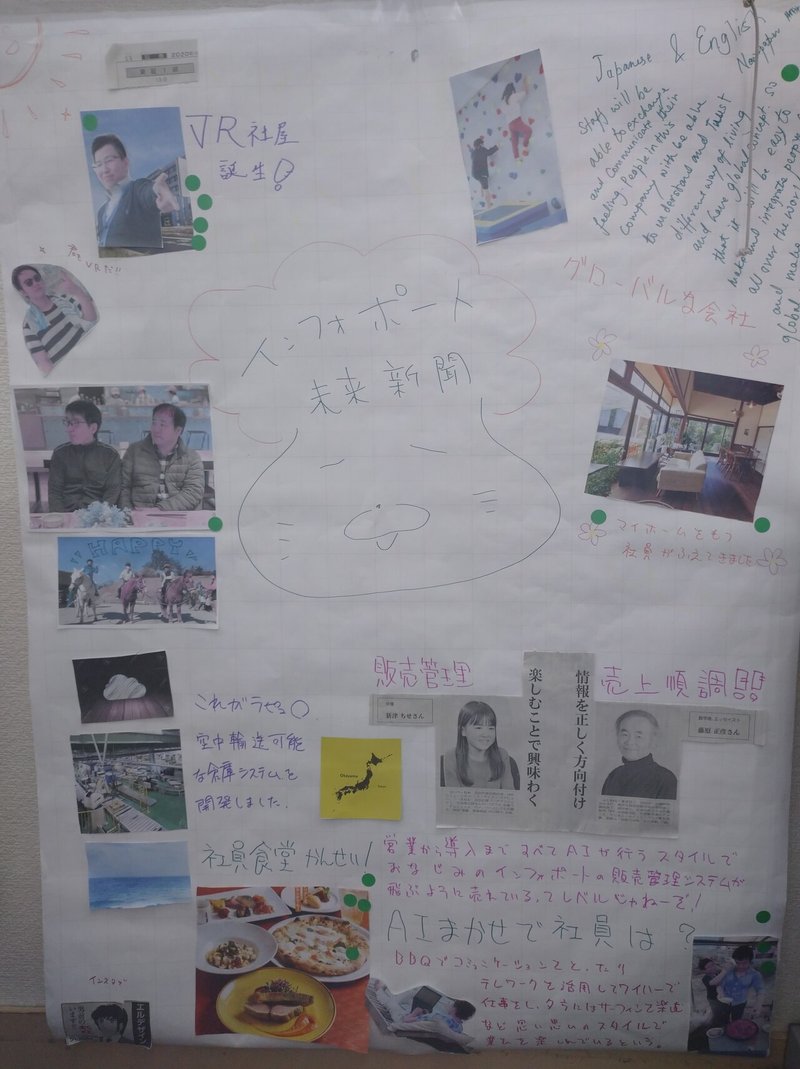 VR社屋
誕生!
君もVRだ!!
Japanese & English
Staff will be
able to exchange
and communicate their
feeling. People in this
company with be able
to understand and Trust
different way of living
and have global concept so
that it will be easy to
make and integrate people
all over the
and made
global
グローバルな会社
インフォポート
未来新聞
HAPPY
マイホームをもつ
社員がふえてきました
販売管理
売上順調!!!
情報を正しく方向付け
楽しむことで興味わく
新津 ちせさん
藤原 正彦さん
Okayama
これがうせる〇
空中輸送可能
な倉庫システムを
開発しました.
社員食堂 かんせい!
営業から導入まですべてAIが行うスタイルで
おなじみのインフォポートの販売管理システムが
飛ぶように売れている,ってレベルじゃねーぞ!
AIまかせで社員は?
BBQでコミュニケーションをとったり
テレワークを活用してハワイで
仕事をし、夕方にはサーフィンで楽園
など思い思いのスタイルで
を楽しんでいるという。
エルダザイン